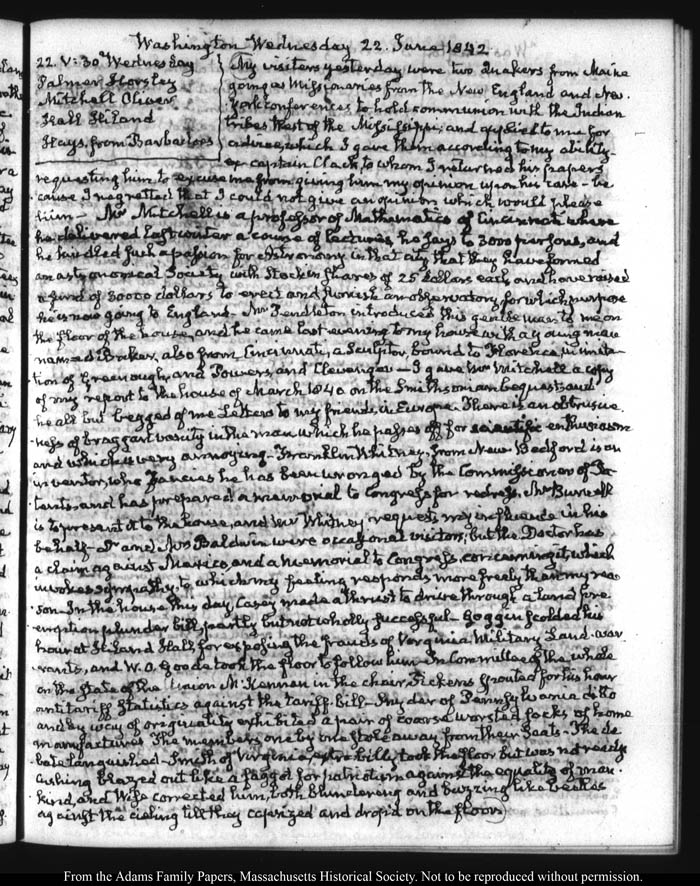 Washington Wednesday 22. June 1842
22. V:30 Wednesday
Palmer Horsley
Mitchell Oliver
Hall Hiland
Hays, from Barbadoes
My visiters yesterday were two Quakers from Maine
going as Missionaries from the New England and New-
York conferences to hold communion with the Indian
tribes West of the Mississippi; and applied to me for
advice, which I gave them according to my ability-
ex-captain Clack, to whom I returned his papers
requesting him to excuse me from giving him my opinion upon his case- be-
cause I regretted that I could not give an opinion which would please
him- Mr Mitchell is a professor of Mathematics of Cincinnati where
he delivered last winter a course of lectures, he says to 3000 persons, and
he kindled such a passion for Astronomy in that city that they have formed
an astronomical Society with Stock in shares of 25 dollars each, and have raised
a fund of 30000 dollars to erect and furnish an observatory, for which purpose
he is now going to England- Mr Pendleton introduced this gentleman to me on
the floor of the house, and he came last evening to my house with a young man
named Brackett, also from Cincinnati, a Sculptor, bound to Florence, in imita-
tion of Greenough, and Powers, and Clevenger- I gave Mr Mitchell a copy
of my report to the house of March 1840 on the Smithsonian bequest, and
he all but begged of me Letters to my friends in Europe. There is an obtrusive-
ness of braggart vanity in the man which he passes off for scientific enthusiasm
and which is very annoying- Franklin Whitney, from New-Bedford is an
inventor, who fancies he has been wronged by the Commissioner of Pa-
tents, and has prepared a memorial to Congress for redress, Mr Burnell
is to present it to the house, and Mr Whitney requests my influence in his
behalf- Dr and Mrs Baldwin were occasional visitors; but the Doctor has
a claim against Mexico, and a Memorial to Congress, concerning it, which
invokes sympathy; to which my feeling responds more freely than my rea-
son. In the house this day Casey made a thrust to drive through a land pre-
emption plunder bill, partly but not wholly successful- Goggin scolded his
hour at Hiland Hall, for exposing the frauds of Virginia Military Land-war-
rants, and W. O. Goode took the floor to follow him- In Committee of the whole
on the state of the Union McKennan in the chair, Pickens spouted for his hour
antitariff Statistics against the tariff-bill- Snyder of Pennsylvania ditto
and by way of originality exhibited a pair of coarse worsted socks of home
manufacture. The members one by one stole away from their Seats- The de-
bate languished- Smith of Virginia, extra billy took the floor but was not ready
Cushing blazed out like a faggot for patriotism against the equality of man-
kind, and Wise corrected him, both blundering and buzzing like beetles
against the cieling till they capsized and drop'd on the floor
From the Adams Family Papers, Massachusetts Historical Society. Not to be reproduced without permission.